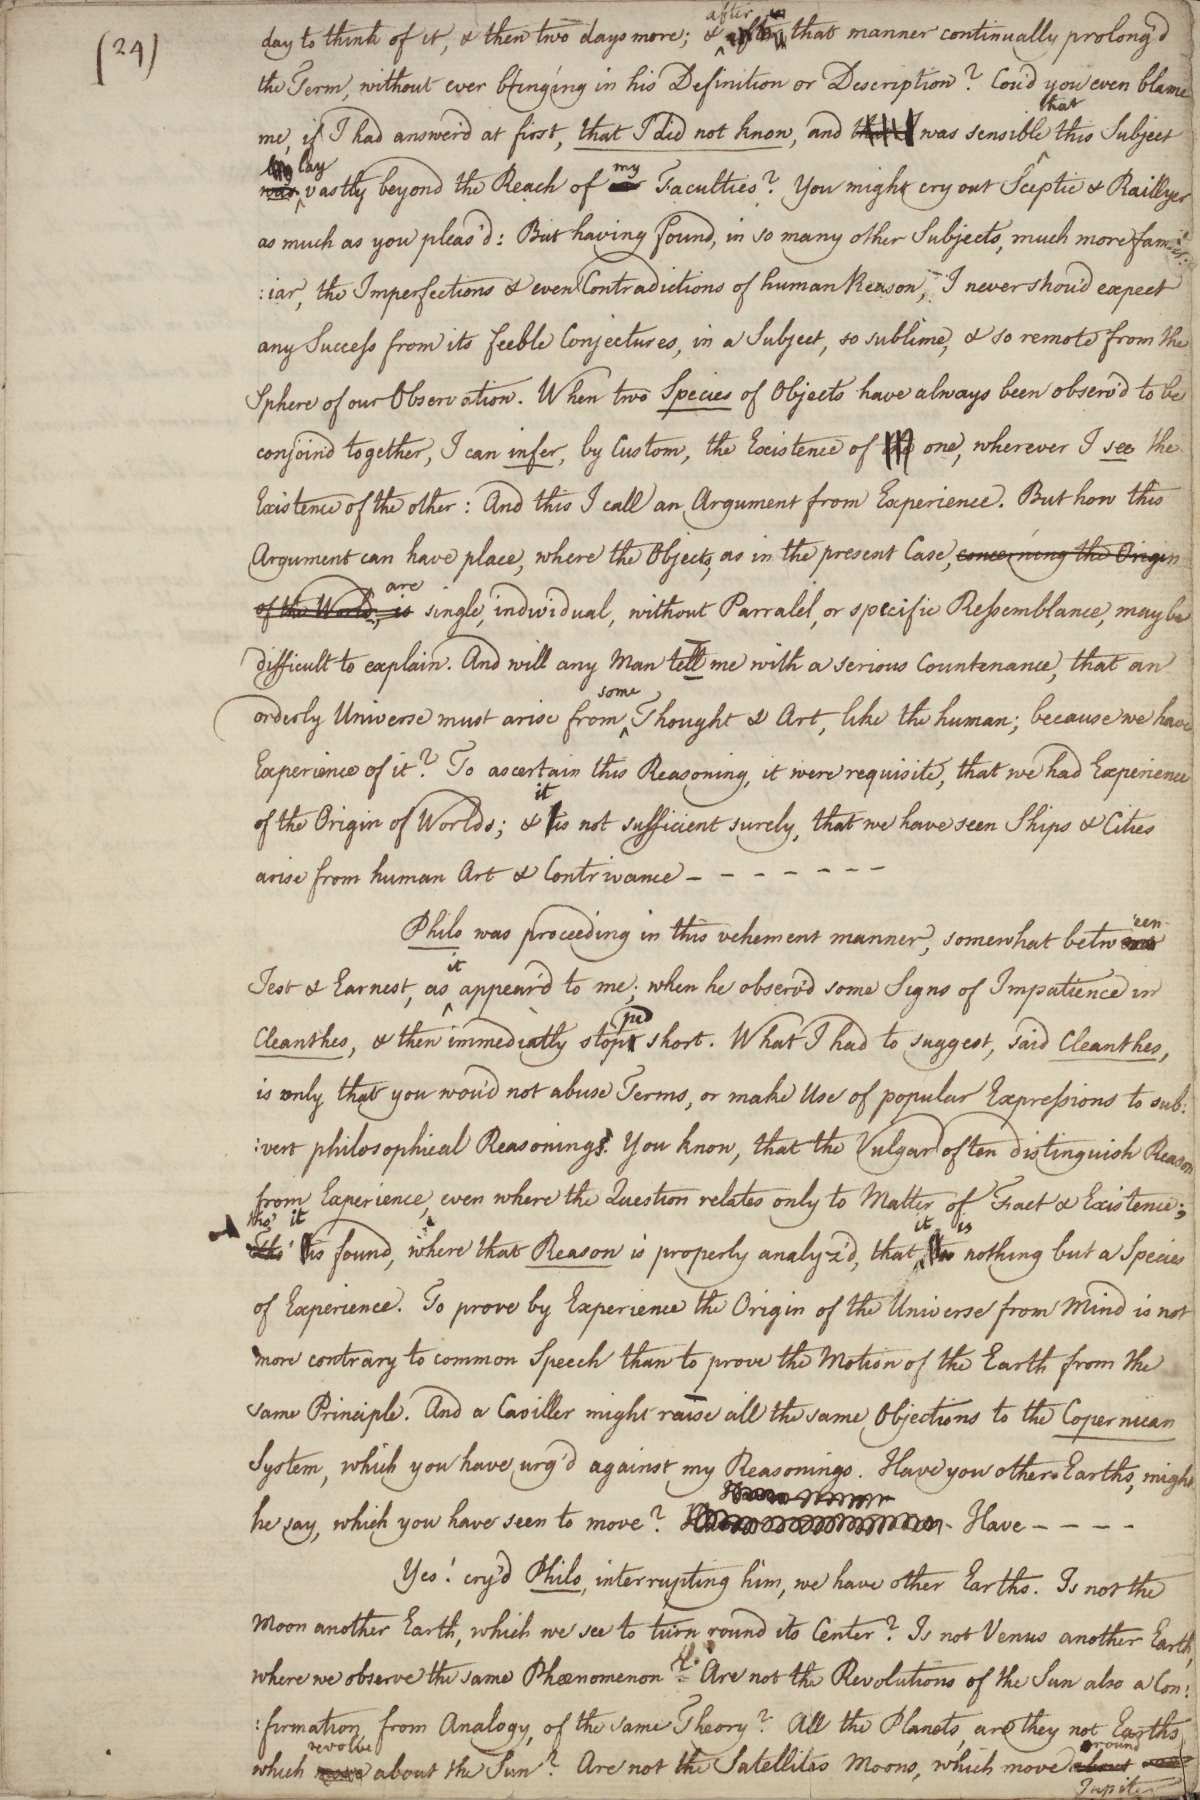 (24)
day to think of it, & then two days more; & after in that manner continually prolong'd
the Term, without ever bringing in his Definition or Description? Cou'd you even blame
me, if I had answer'd at first, that I did not know, and was sensible that this Subject
lay vastly beyond the Reach of my Faculties? You might cry out Sceptic & Raillyer
as much as you pleas'd: But having found, in so many other Subjects, much more famil:
:iar, the Imperfections & even Contradictions of human Reason, I never shou'd expect
any Success from its feeble Conjectures, in a Subject, so sublime, & so remote from the
Sphere of our Observation. When two Species of Objects have always been observ'd to be
conjoind together, I can infer, by Custom, the Existence of one, wherever I see the
Existence of the other: And this I call an Argument from Experience. But how this
Argument can have place, where the Objects, as in the present Case, concerning the Origin
of the World, is are single, individual, without Parralel, or specific Ressemblance, may be
difficult to explain. And will any Man tell me with a serious Countenance, that an
orderly Universe must arise from some Thought & Art, like the human; because we have
Experience of it? To ascertain this Reasoning, it were requisite, that we had Experience
of the Origin of Worlds; & it is not sufficient surely, that we have seen Ships & Cities
arise from human Art & Contrivance - - - - - - - -
Philo was proceeding in this vehement manner, somewhat between
Jest & Earnest, as it appear'd to me; when he observ'd some Signs of Impatience in
Cleanthes, & then immediatly stopped short. What I had to suggest, said Cleanthes,
is only that you wou'd not abuse Terms, or make Use of popular Expressions to sub:
:vert philosophical Reasonings. You know, that the Vulgar often distinguish Reason
from Experience, even where the Question relates only to Matter of Fact & Existence;
tho' it is found, where that Reason is properly analyz'd, that it is nothing but a Species
of Experience. To prove by Experience the Origin of the Universe from Mind is not
more contrary to common Speech than to prove the Motion of the Earth from the
same Principle. And a Caviller might raise all the same Objections to the Copernican
System, which you have urg'd against my Reasonings. Have you other Earths, might
he say, which you have seen to move? Have - - - -
Yes! cry'd Philo, interrupting him, we have other Earths. Is not the
Moon another Earth, which we see to turn round its Center? Is not Venus another Earth,
where we observe the same Phænomenon? Are not the Revolutions of the Sun also a Con:
:firmation, from Analogy, of the same Theory? All the Planets, are they not Earths,
which revolve about the Sun? Are not the Satellites Moons, which move about around
Jupiter